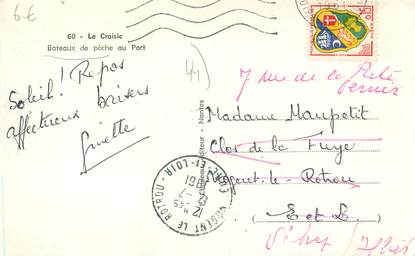 6€
60 - Le Croisic
Bateaux de pêche au Port
44
Soleil! Repos
affectueux baisers
Ginette
Editeur - Nantes
7 rue de la
Madame Maupetit
Clos de la Fuye
Nogent-le-Rotrou
(E et L)
Vichy Allier
NOGENT LE ROTROU
EURE-ET-LOIR
12 H 45
61
0,15